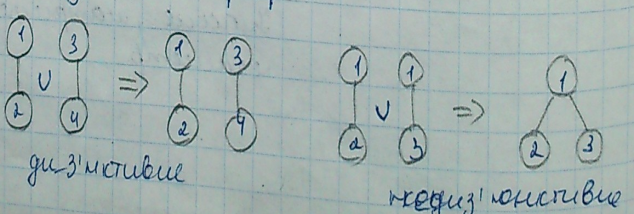 1 3 1 3 1 1 1
∪ ⇒ ∪ ⇒
2 4 2 4 2 3 2 3
диз'юнктивне
недиз'юнктивне